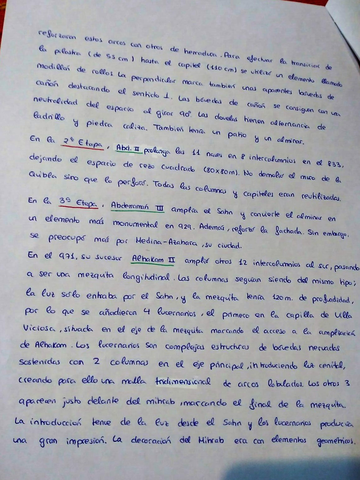 reforzaron estos arcos con otros de herradura. Para efectuar la transición de
la pilastra (de 53 cm) hasta el capitel (110 cm) se utiliza un elemento llamado
modillón de rollos. La perpendicular marca también unas aparentes bóvedas de
cañón destacando el sentido 1. Las bóvedas de cañón se consiguen con una
neutralidad del espacio al girar 90º. Las dovelas tienen alternancia de
ladrillo y piedra caliza. También tenía un patio y un alminar.
En la 2ª Etapa, Abd. II prolonga las 11 naves en 8 intercolumnios en el 833.
dejando el espacio de rezo cuadrado (80x80m). No demolió el muro de la
Quibla sino que lo perforó. Todas las columnas y capiteles eran reutilizadas.
En la 3ª Etapa, Abderramán III amplía el Sahn y convierte el alminar en
un elemento más monumental en 929. Además, reforzó la fachada. Sin embargo,
se preocupó más por Medina-Azahara, su ciudad.
En el 971, su sucesor Alhakam II amplió otros 12 intercolumnios al sur, pasando
a ser una mezquita longitudinal. Las columnas seguían siendo del mismo tipo;
la luz sólo entraba por el Sahn, y la mezquita tenía 120m de profundidad,
por lo que se añadieron 4 lucernarios, el primero en la capilla de Villa
Viciosa, situada en el eje de la mezquita marcando el acceso a la ampliación
de Alhakam. Los lucernarios son complejas estructuras de bóvedas nervadas
sostenidas con 2 columnas en el eje principal, introduciendo la cenital,
creando para ello una malla tridimensional de arcos lobulados. Los otros 3
aparecen justo delante del mihrab, marcando el final de la mezquita.
La introducción tenue de la luz desde el Sahn y los lucernarios producía
una gran impresión. La decoración del Mihrab era con elementos geométricos,